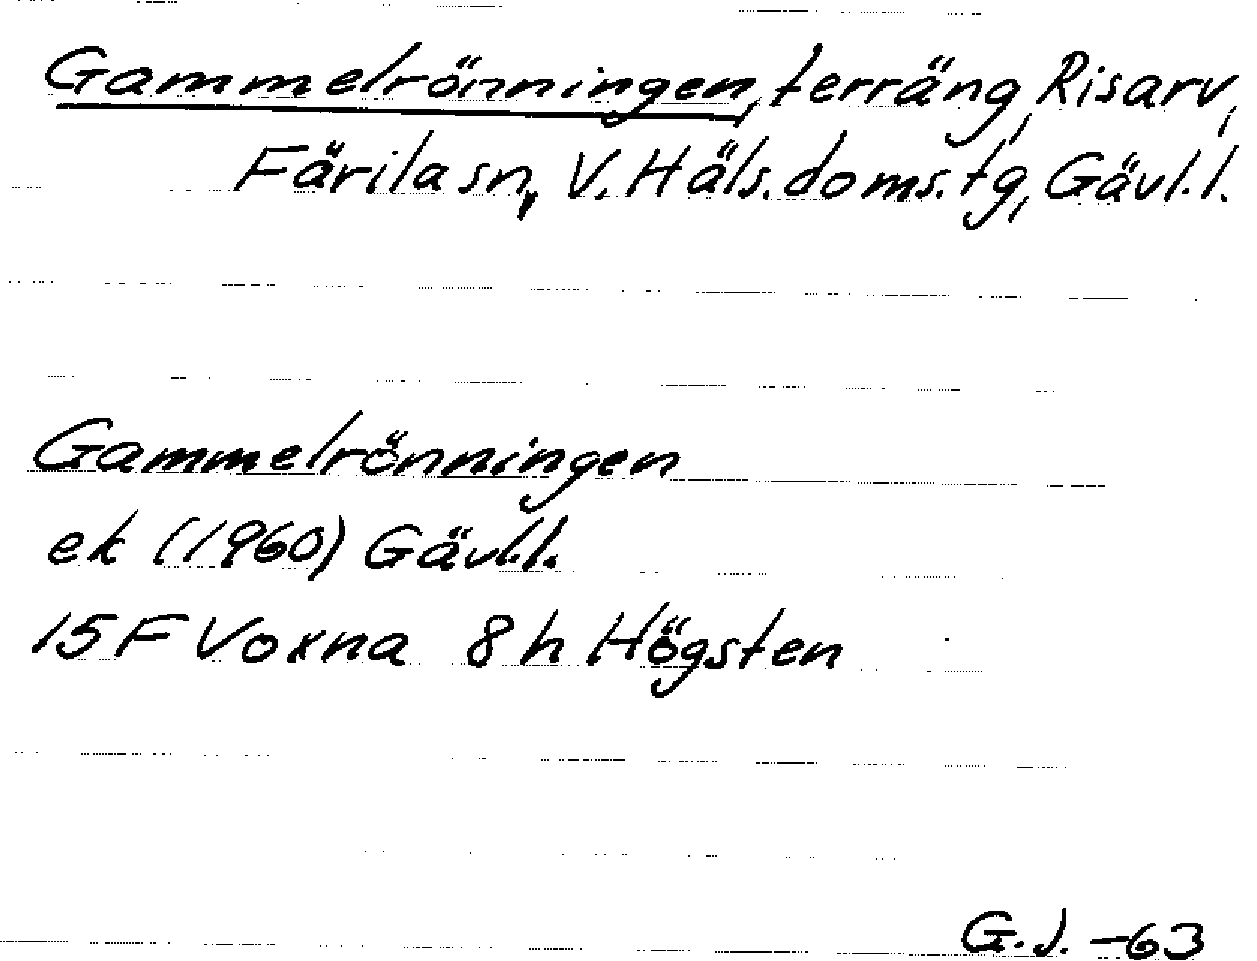 Gammelrönningen, terräng, Risarv,
Färila sn, V. Häls. doms. tg, Gävl. l.
Gammelrönningen
ek (1960) Gävl. l.
15 F Voxna 8 h Högsten
G. J. -63